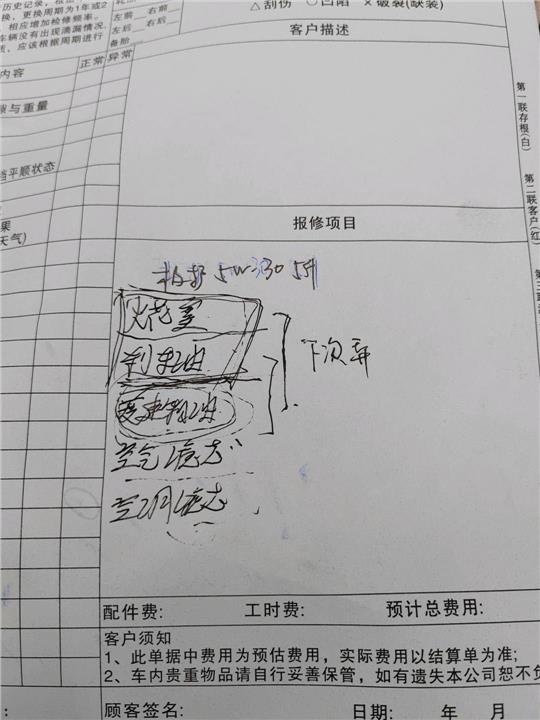 历史记录,根
换,更换周期为1年或2
相应增加检修频率。
车辆没有出现滴漏情况,
应该根据周期进行
左前 右前
左后 右后
备胎
△刮伤 ○凹陷 ×破裂(缺装)
客户描述
内容
正常 异常
与重量
平顺状态
果
天气)
第一联存根(白)
第二联客户(红)
报修项目
5W-30 5升
火花塞
刹车油
变速箱油
下次弄
空气滤芯
空调滤芯
配件费: 工时费: 预计总费用:
客户须知
1、此单据中费用为预估费用,实际费用以结算单为准;
2、车内贵重物品请自行妥善保管,如有遗失本公司恕不负
顾客签名: 日期: 年 月